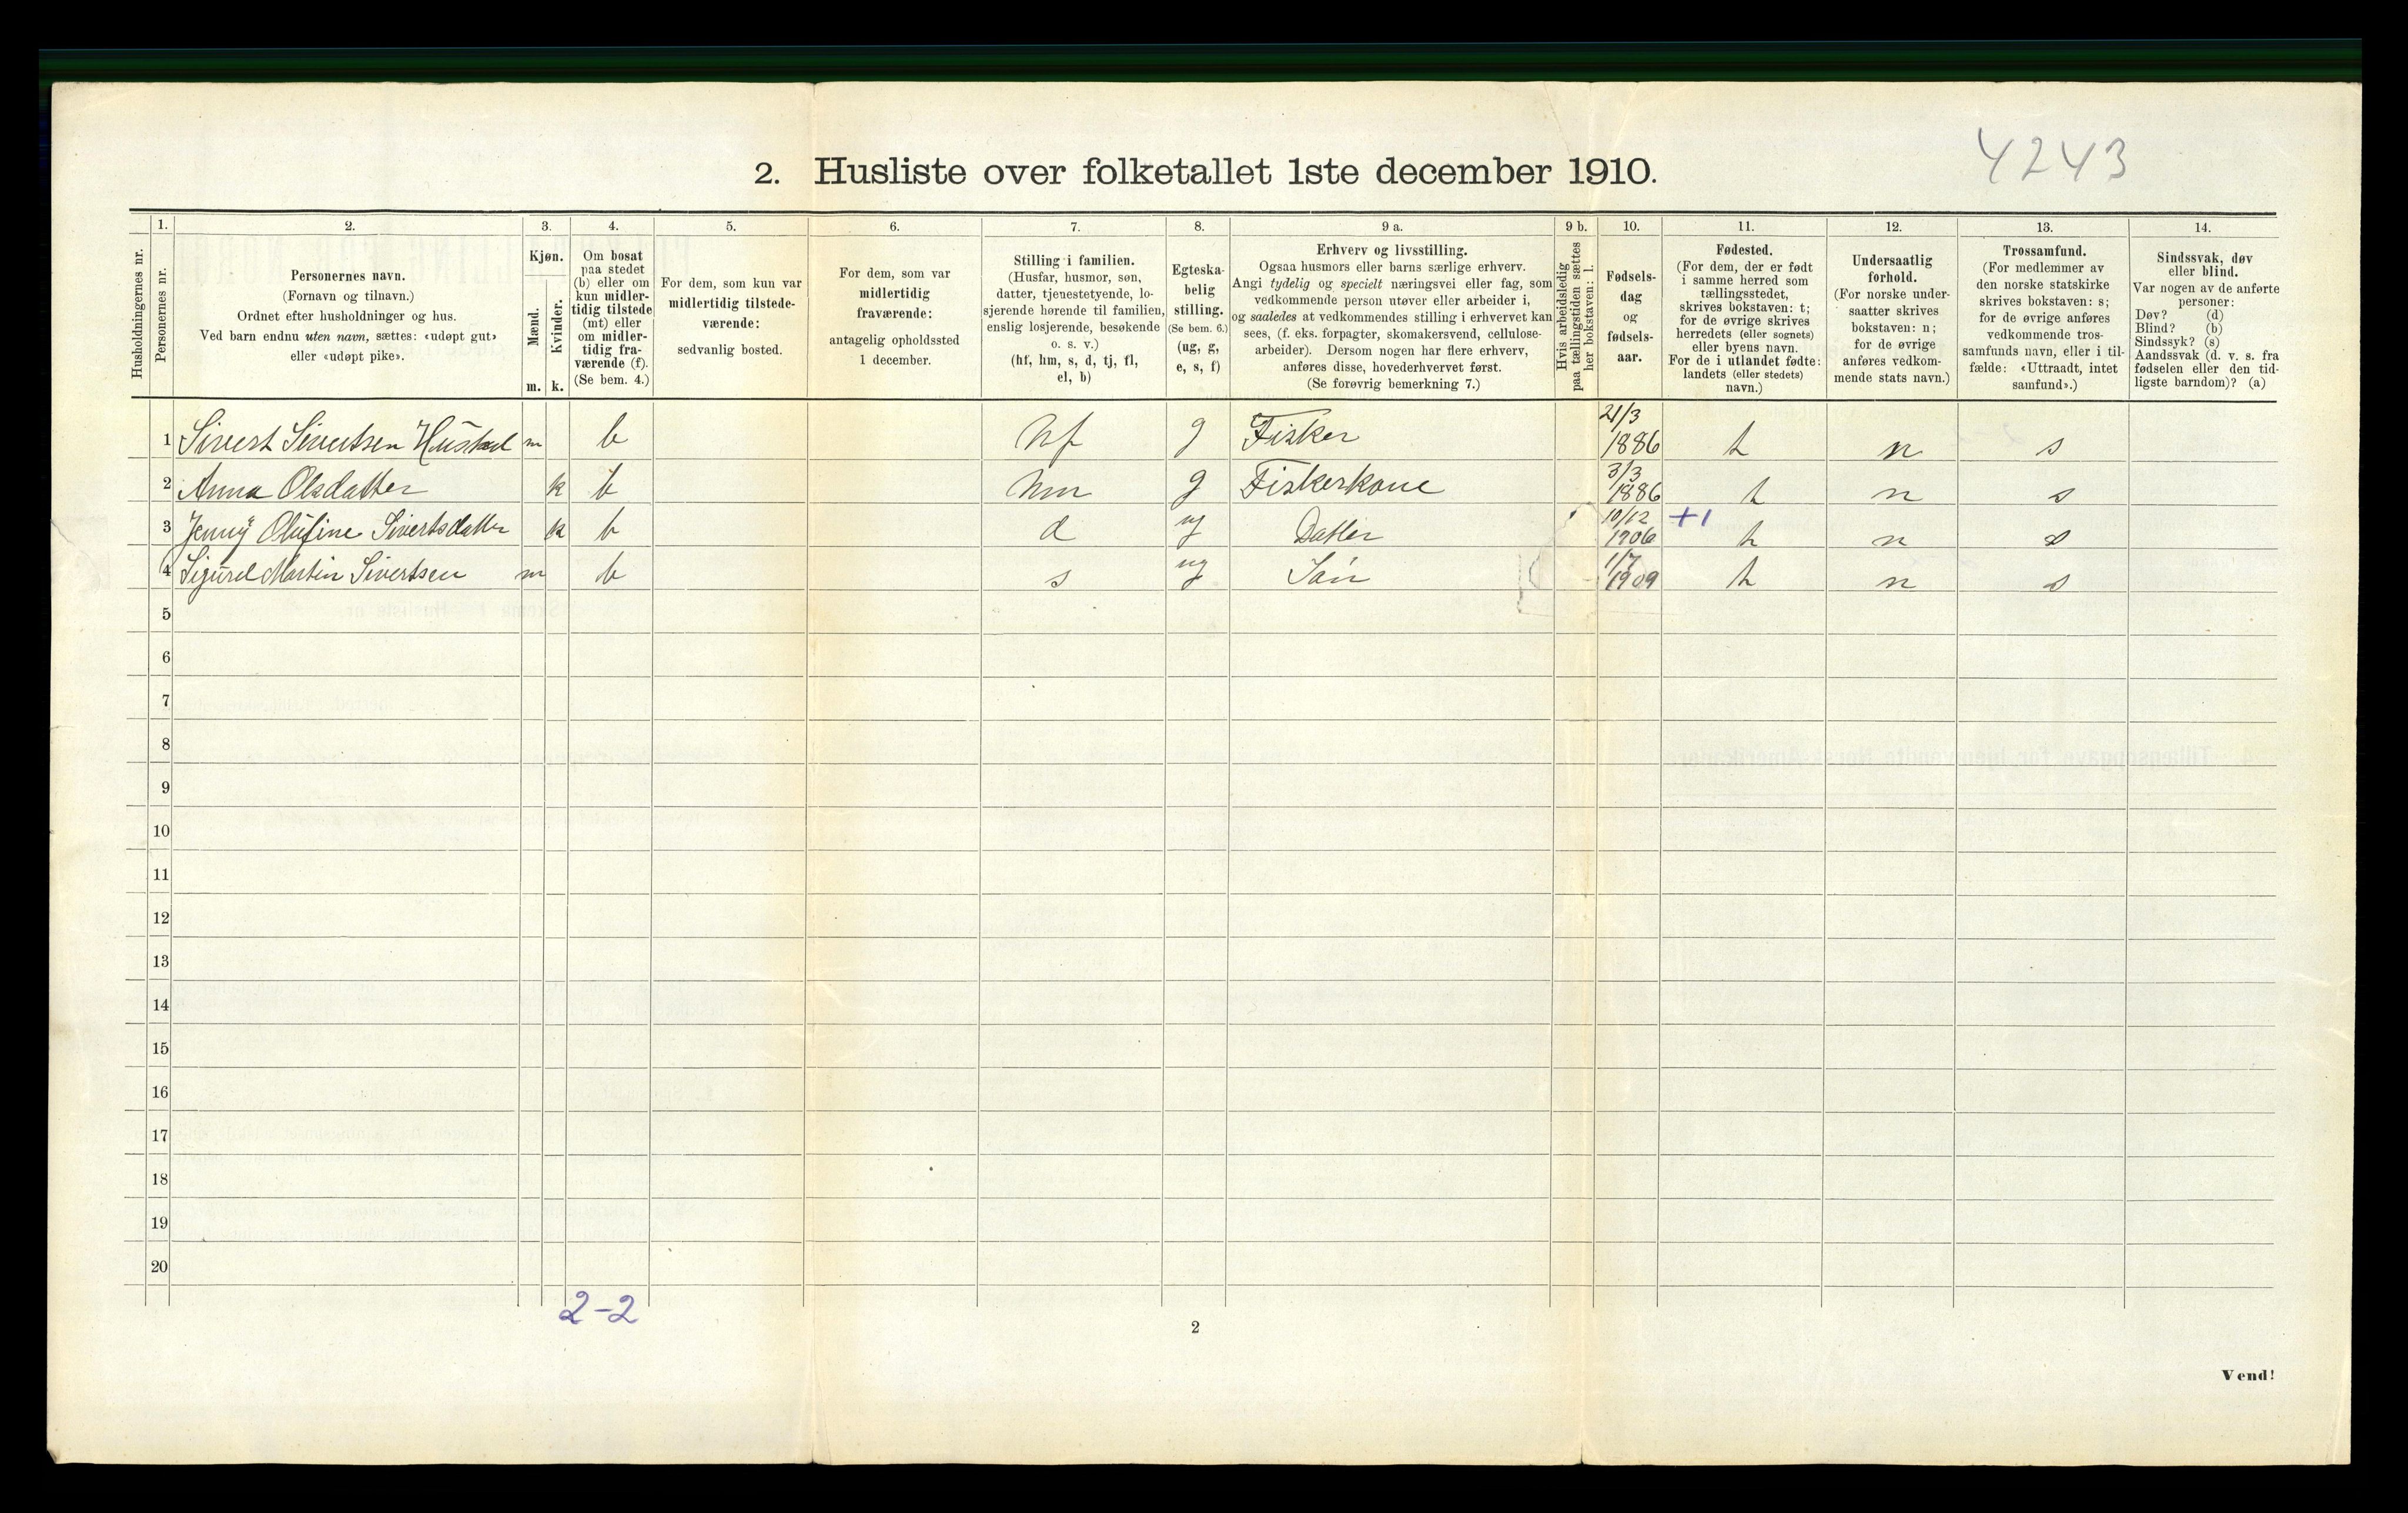 4243
2. Husliste over folketallet 1ste december 1910.
Husholdningernes nr.
1.
Personernes nr.
2.
Personernes navn.
(Fornavn og tilnavn.)
Ordnet efter husholdninger og hus.
Ved barn endnu uten navn, sættes: «udøpt gut»
eller «udøpt pike».
3.
Kjøn.
Mænd.
Kvinder.
m. k.
4.
Om bosat
paa stedet
(b) eller om
kun midler-
tidig tilstede
(mt) eller
om midler-
tidig fra-
værende (f).
(Se bem. 4.)
5.
For dem, som kun var
midlertidig tilstede-
værende:
sedvanlig bosted.
6.
For dem, som var
midlertidig
fraværende:
antagelig opholdssted
1 december.
7.
Stilling i familien.
(Husfar, husmor, søn,
datter, tjenestetyende, lo-
sjerende hørende til familien,
enslig losjerende, besøkende
o. s. v.)
(hf, hm, s, d, tj, fl,
el, b)
8.
Egteska-
belig
stilling.
(Se bem. 6.)
(ug, g,
e, s, f)
9 a.
Erhverv og livsstilling.
Ogsaa husmors eller barns særlige erhverv.
Angi tydelig og specielt næringsvei eller fag, som
vedkommende person utøver eller arbeider i,
og saaledes at vedkommendes stilling i erhvervet kan
sees, (f. eks. forpagter, skomakersvend, cellulose-
arbeider). Dersom nogen har flere erhverv,
anføres disse, hovederhvervet først.
(Se forøvrig bemerkning 7.)
9 b.
Hvis arbeidsledig
paa tællingstiden sættes
her bokstaven: l.
10.
Fødsels-
dag
og
fødsels-
aar.
11.
Fødested.
(For dem, der er født
i samme herred som
tællingsstedet,
skrives bokstaven: t;
for de øvrige skrives
herredets (eller sognets)
eller byens navn.
For de i utlandet fødte:
landets (eller stedets)
navn.)
12.
Undersaatlig
forhold.
(For norske under-
saatter skrives
bokstaven: n;
for de øvrige
anføres vedkom-
mende stats navn.)
13.
Trossamfund.
(For medlemmer av
den norske statskirke
skrives bokstaven: s;
for de øvrige anføres
vedkommende tros-
samfunds navn, eller i til-
fælde: «Uttraadt, intet
samfund».)
14.
Sindssvak, døv
eller blind.
Var nogen av de anførte
personer:
Døv? (d)
Blind? (b)
Sindssyk? (s)
Aandssvak (d. v. s. fra
fødselen eller den tid-
ligste barndom)? (a)
1 Sivert Sivertsen Hustad m b hf g Fisker 21/3 1886 t n s
2 Anna Olsdatter k b hm g Fiskerkone 3/3 1886 t n s
3 Jenny Olufine Sivertsdatter k b d ug Datter 10/12 1906 +1 t n s
4 Sigurd Martin Sivertsen m b s ug Søn 1/7 1909 t n s
5
6
7
8
9
10
11
12
13
14
15
16
17
18
19
20
2-2
2
Vend!